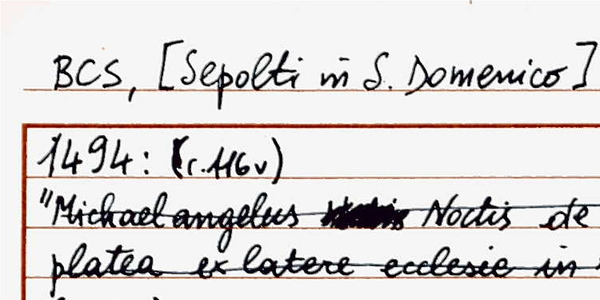 BCS, [Sepolti in S. Domenico]
1494: (c. 116v)
"Michael angelus Noctis de
platea ex latere ecclesie in